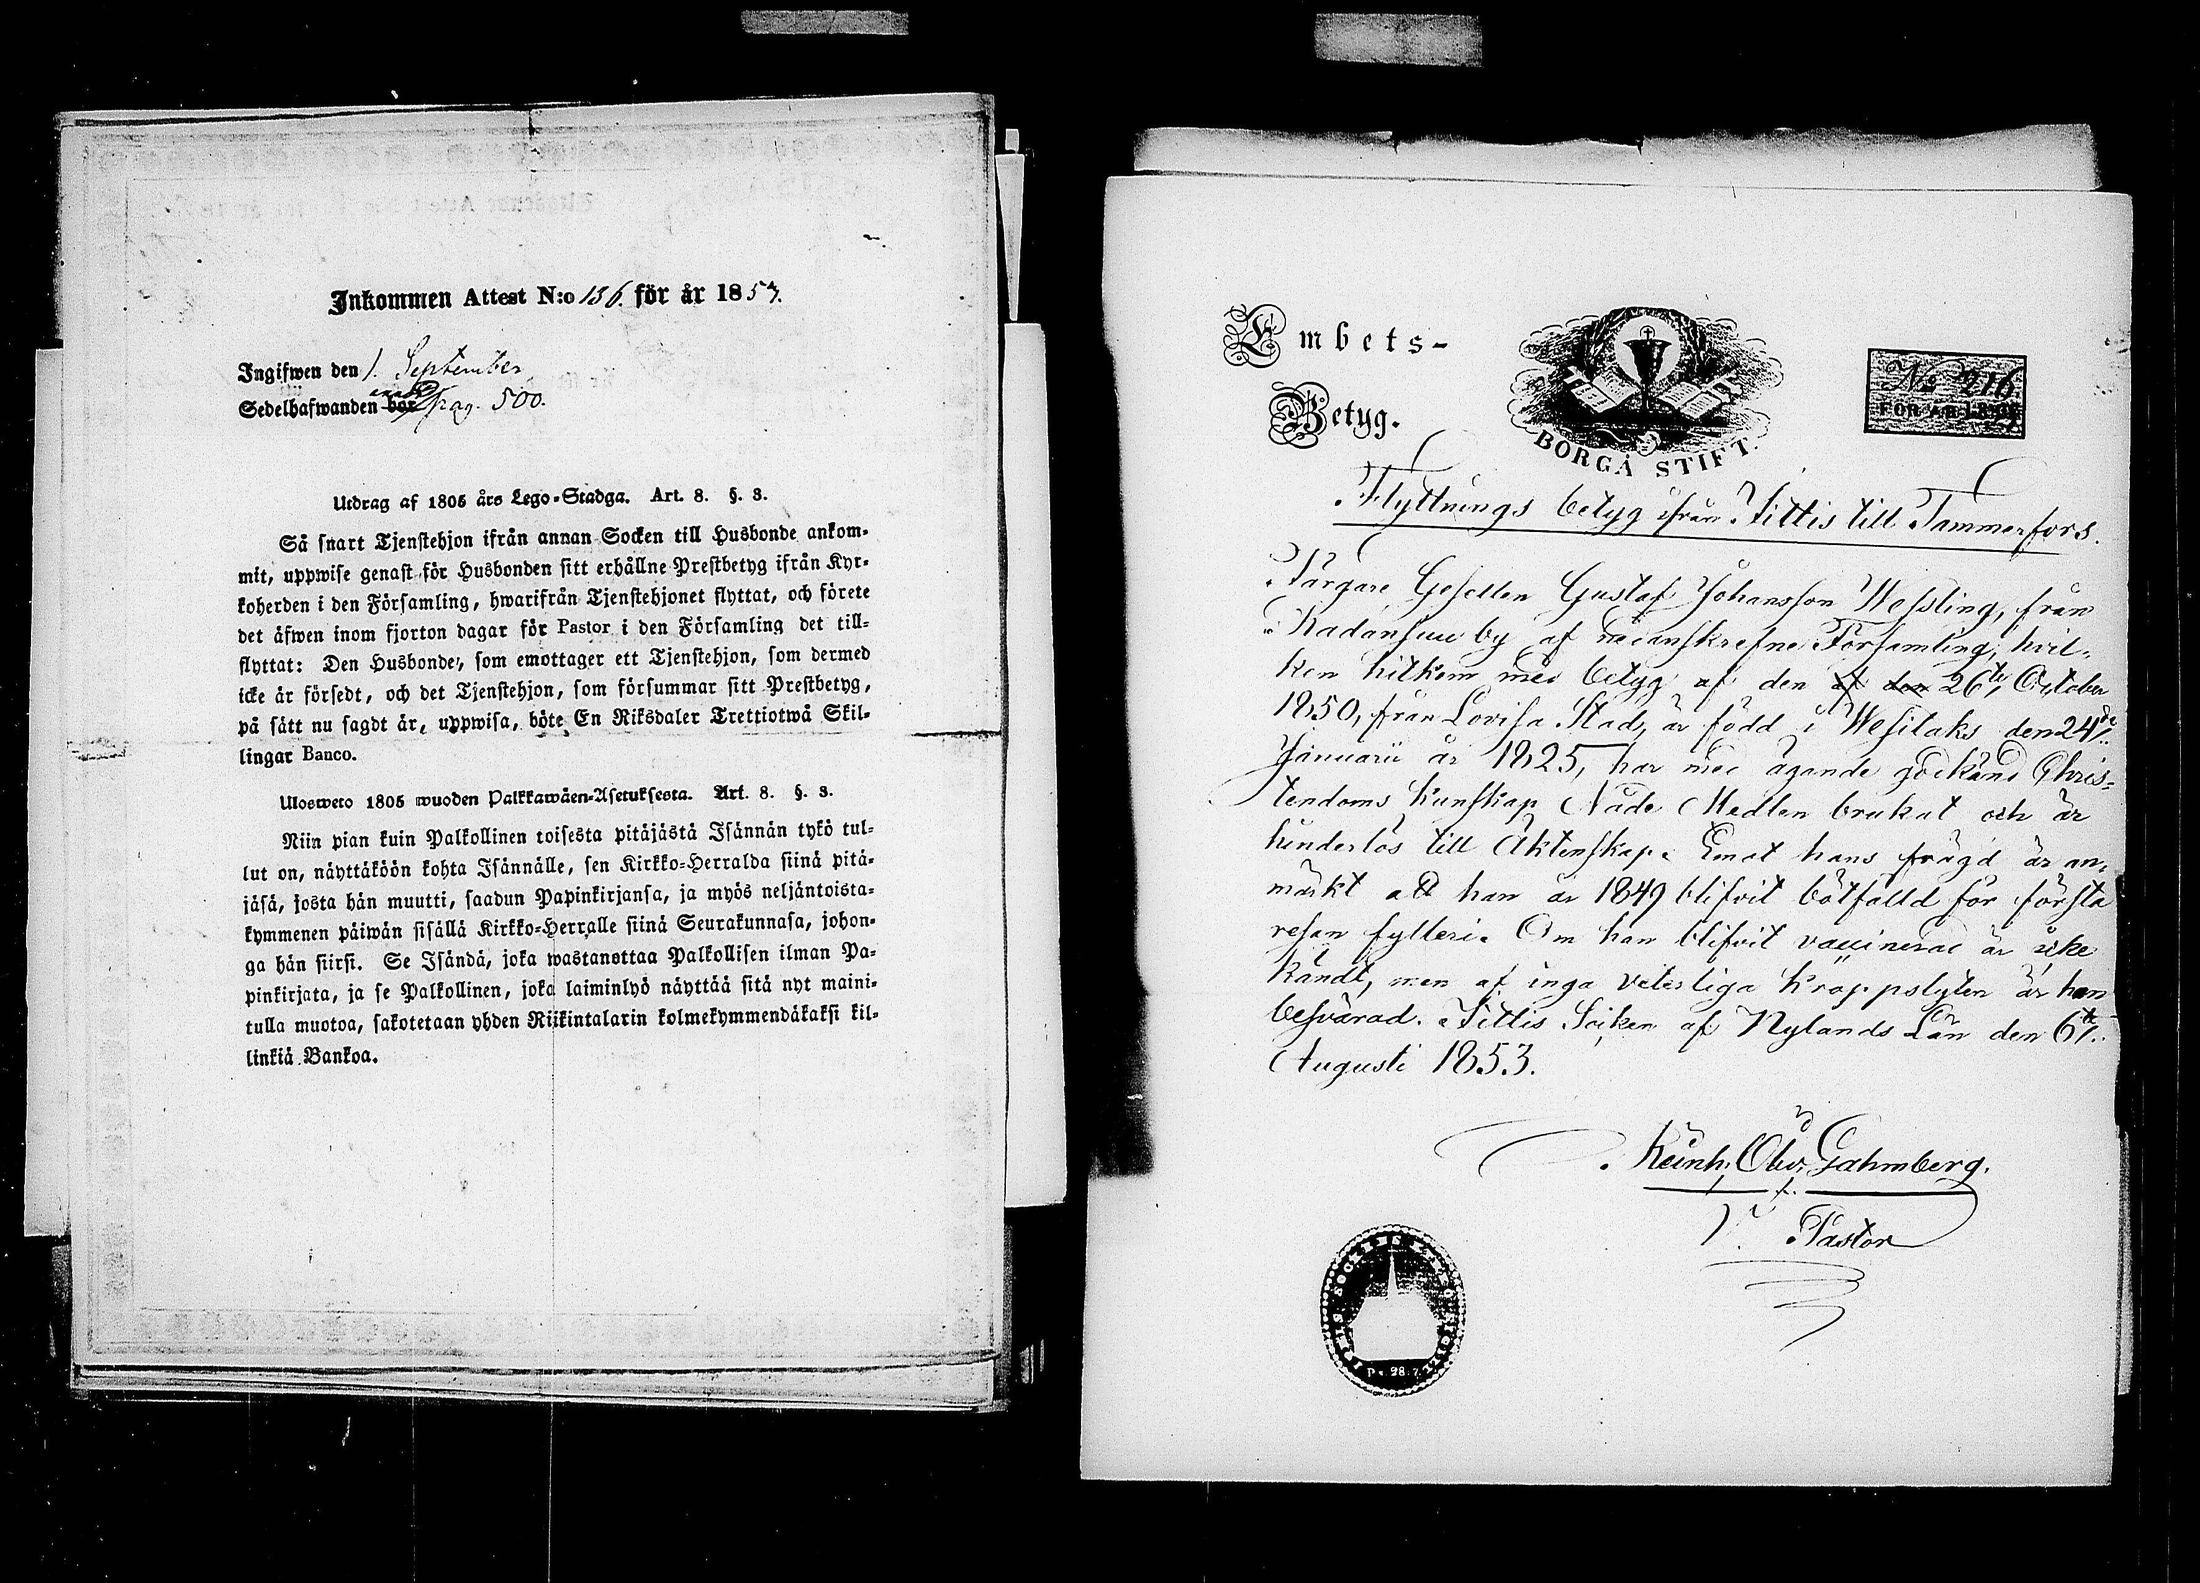 Inkommen Attest N:o 136. för år 1853.
Ingifwen den 1. September
Sedelhafwanden bor pag. 500.
Utdrag af 1805 års Lego-Stadga. Art. 8. §. 3.
Så snart Tjenstehjon ifrån annan Socken till Husbonde ankom-
mit, uppwise genast för Husbonden sitt erhållne Prestbetyg ifrån Kyr-
koherden i den Församling, hwarifrån Tjenstehjonet flyttat, och förete
det äfwen inom fjorton dagar för Pastor i den Församling det till-
flyttat: Den Husbonde, som emottager ett Tjenstehjon, som dermed
icke är försedt, och det Tjenstehjon, som försummar sitt Prestbetyg,
på sätt nu sagdt är, uppwisa, böte En Riksdaler Trettiotwå Skil-
lingar Banco.
Ulosweto 1805 wuoden Palkkawäen-Asetuksesta. Art. 8. §. 3.
Niin pian kuin Palkollinen toisesta pitäjästä Isännän tykö tul-
lut on, näyttäköön kohta Isännälle, sen Kirkko-Herralda siinä pitä-
jäsä, josta hän muutti, saadun Papinkirjansa, ja myös neljäntoista-
kymmenen päiwän sisällä Kirkko-Herralle siinä Seurakunnasa, johon-
ga hän siirsi. Se Isändä, joka wastanottaa Palkollisen ilman Pa-
pinkirjata, ja se Palkollinen, joka laiminlyö näyttää sitä nyt maini-
tulla muotoa, sakotetaan yhden Riikintalarin kolmekymmendäkaksi kil-
linkiä Bankoa.
Embets-
Betyg.
BORGÅ STIFT.
No 216
FÖR ÅR 18
Flyttnings betyg ifrån Jittis till Tammerfors.
Färgare Gesellen Gustaf Johansson Wessling, från
Radansuu by af ofvanskrefne Församling, hvil-
ken hitkom med betyg af den af den 26te October
1850, från Lovisa Stad, är född i Wesilaks den 24de
Januarii år 1825, har med ägande godkänd Chris-
tendoms Kunskap Nåde Medlen brukat och är
hinderlös till Äktenskap. Emot hans frägd är an-
märkt att han år 1849 blifvit bötfälld för första
resan fylleri. Om han blifvit vaccinerad är icke
kändt, men af inga veterliga kroppslyten är han
besvärad. Jittis Socken af Nylands Län den 6te
Augusti 1853.
Reinh. Olw. Gahmberg.
V. Pastor